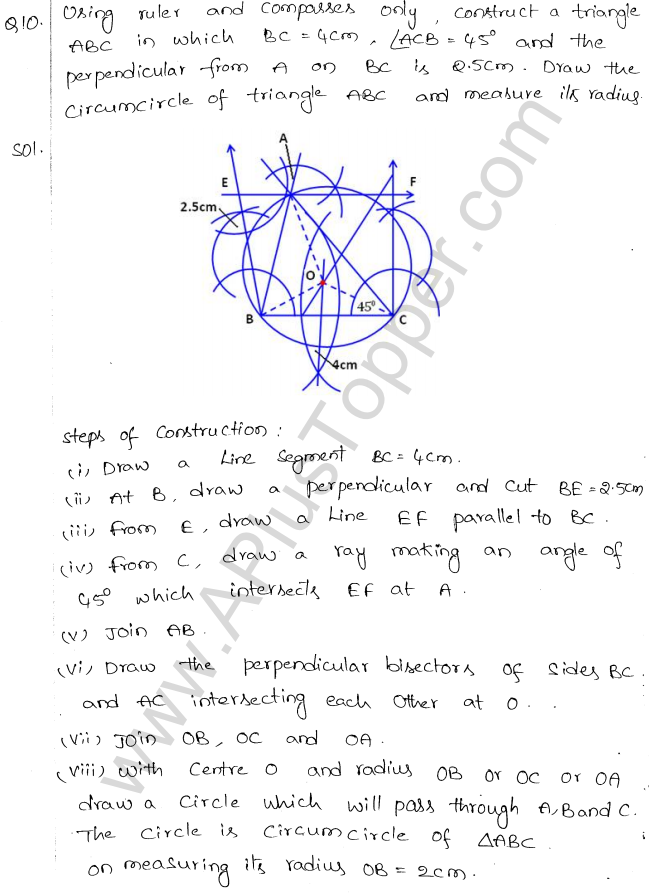 Q10. Using ruler and compasses only, construct a triangle
ABC in which BC = 4cm, ∠ACB = 45° and the
perpendicular from A on BC is 2.5cm. Draw the
circumcircle of triangle ABC and measure its radius.
Sol.
A
E F
2.5cm
O
45°
B C
4cm
Steps of Construction:
(i) Draw a Line Segment BC = 4cm.
(ii) At B, draw a perpendicular and cut BE = 2.5cm
(iii) from E, draw a Line EF parallel to BC.
(iv) from C, draw a ray making an angle of
45° which intersects EF at A.
(v) Join AB.
(vi) Draw the perpendicular bisectors of sides BC
and AC intersecting each other at O.
(vii) Join OB, OC and OA.
(viii) with centre O and radius OB or OC or OA
draw a circle which will pass through A,B and C.
The circle is circumcircle of △ABC.
on measuring its radius OB = 2cm.
www.APlusTopper.com